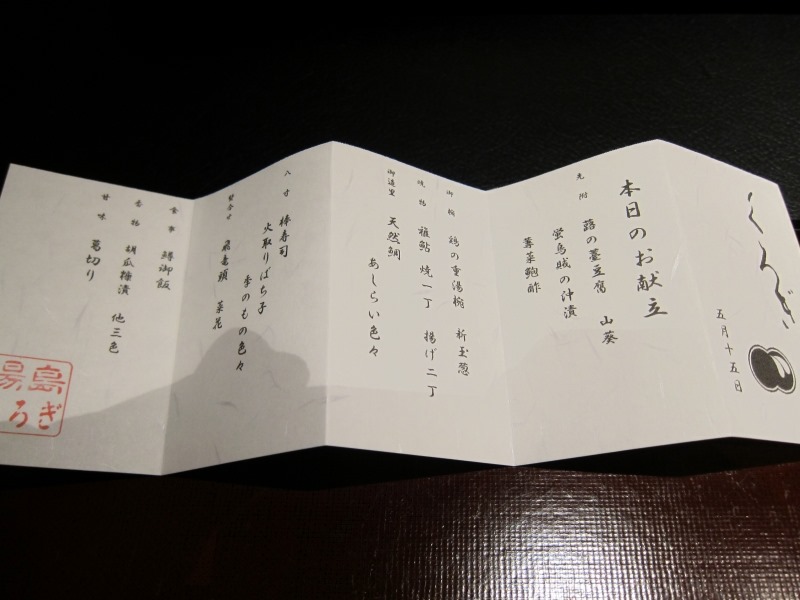 くろぎ
五月十五日
本日のお献立
先附 蕗の薹豆腐 山葵
蛍烏賊の沖漬
蓴菜鮑酢
御椀 鶉の重湯椀 新玉葱
焼物 稚鮎 焼一丁 揚げ二丁
御造里 天然鯛
あしらい色々
八寸 棒寿司
火取りばち子
季のもの色々
焚合せ 飛竜頭 菜花
食事 鱒御飯
香物 胡瓜糠漬 他三色
甘味 葛切り
湯島
ろぎ